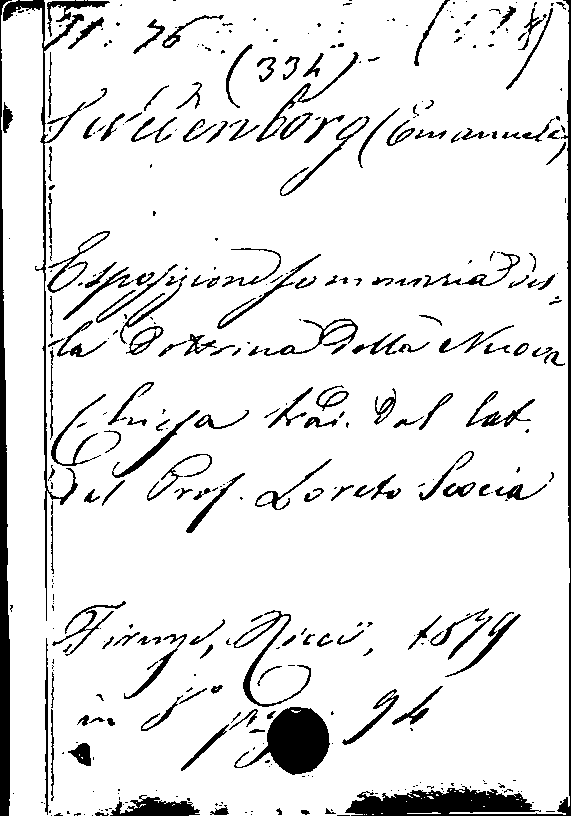 76
(334)
Swedenborg (Emanuele)
Esposizione sommaria del-
la Dottrina della Nuova
Chiesa trad. dal lat.
Dal Prof. Loreto Scocia
Firenze, Ricci, 1879
in 8° pag. 94